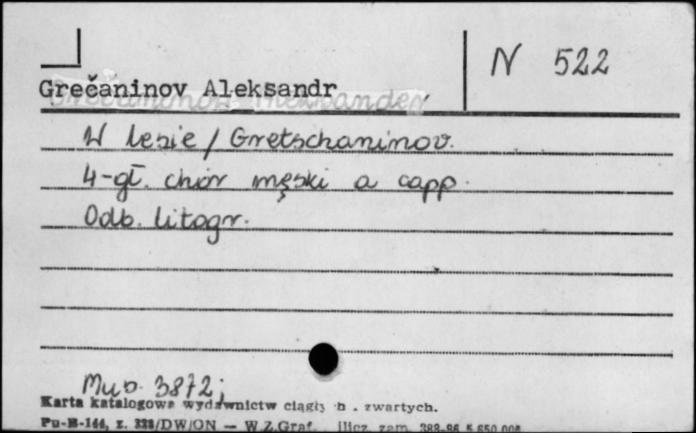 N 522
Grečaninov Aleksandr
W lesie / Gretschaninov.
4-gł. chór męski a capp.
Odb. litogr.
Mus. 3872;
Karta katalogowa wydawnictw ciągłych . zwartych.
Pu-B-144, z. 328/DW/ON — W.Z.Graf. zam. 388-86 5.650.000